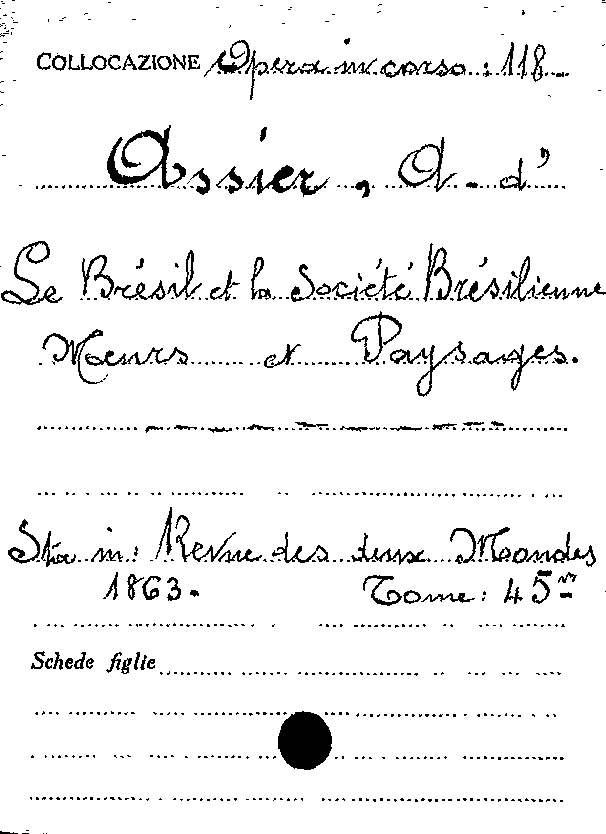 COLLOCAZIONE Opera in corso: 118-
Assier, A. d'
Le Brésil et la Société Brésilienne
Mœurs et Paysages.
Sta in: Revue des deux Mondes
1863. Tome: 45
Schede figlie